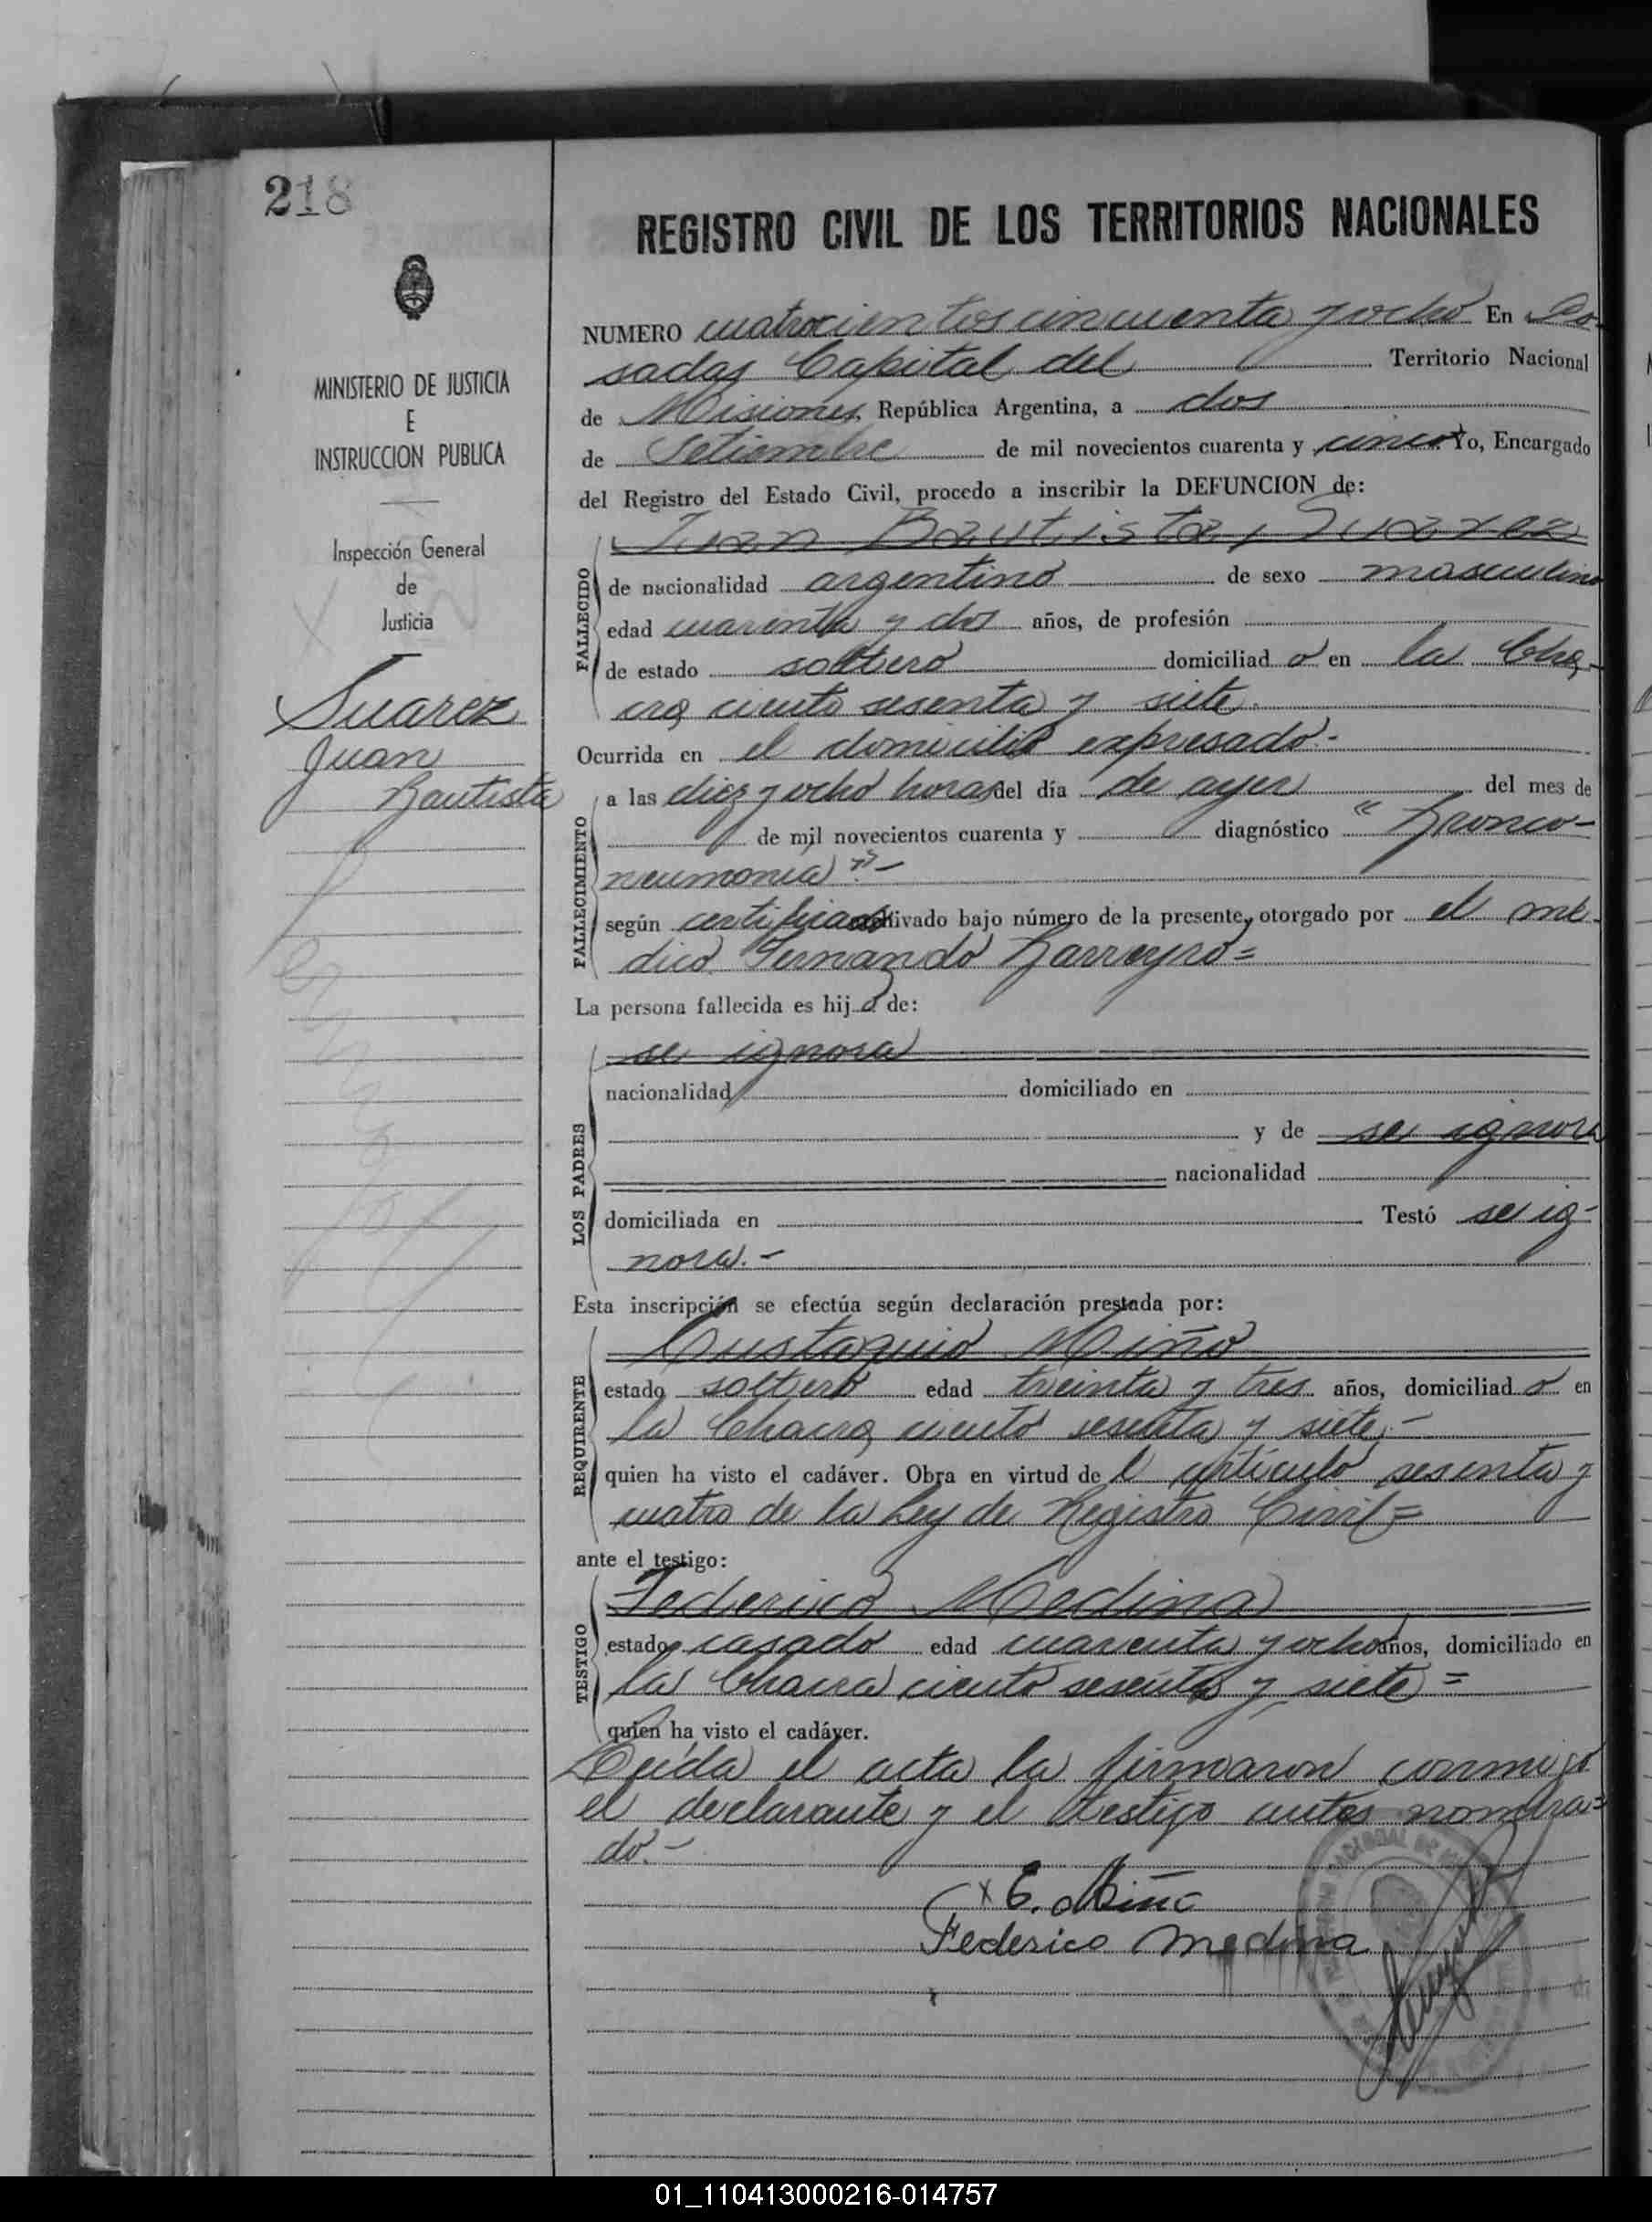 218
REGISTRO CIVIL DE LOS TERRITORIOS NACIONALES
MINISTERIO DE JUSTICIA
E
INSTRUCCION PUBLICA
Inspección General
de
Justicia
Suarez
Juan
Bautista
NUMERO cuatrocientos cincuenta y ocho En Po-
sadas Capital del Territorio Nacional
de Misiones, República Argentina, a dos
de Setiembre de mil novecientos cuarenta y cinco Yo, Encargado
del Registro del Estado Civil, procedo a inscribir la DEFUNCION de:
Juan Bautista Suarez
FALLECIDO
de nacionalidad argentino de sexo masculino
edad cuarenta y dos años, de profesión
de estado soltero domiciliad o en la Cha-
cra ciento sesenta y siete.
Ocurrida en el domicilio expresado.-
FALLECIMIENTO
a las diez y ocho horas del día de ayer del mes de
de mil novecientos cuarenta y diagnóstico "Bronco-
neumonia".-
según certificado archivado bajo número de la presente, otorgado por el mé-
dico Fernando Barreyro=
La persona fallecida es hij o de:
LOS PADRES
se ignora
nacionalidad domiciliado en
y de se ignora
nacionalidad
domiciliada en Testó se ig-
nora.-
Esta inscripción se efectúa según declaración prestada por:
REQUIRENTE
Eustaquio Miño
estado soltero edad treinta y tres años, domiciliad o en
la Chacra ciento sesenta y siete.-
quien ha visto el cadáver. Obra en virtud de l artículo sesenta y
cuatro de la Ley de Registro Civil=
ante el testigo:
TESTIGO
Federico Medina
estado casado edad cuarenta y ocho años, domiciliado en
la Chacra ciento sesenta y siete=
quien ha visto el cadáver.
Leída el acta la firmaron conmigo
el declarante y el testigo antes nombra=
do.-
x E. Miño
Federico Medina
01_110413000216-014757